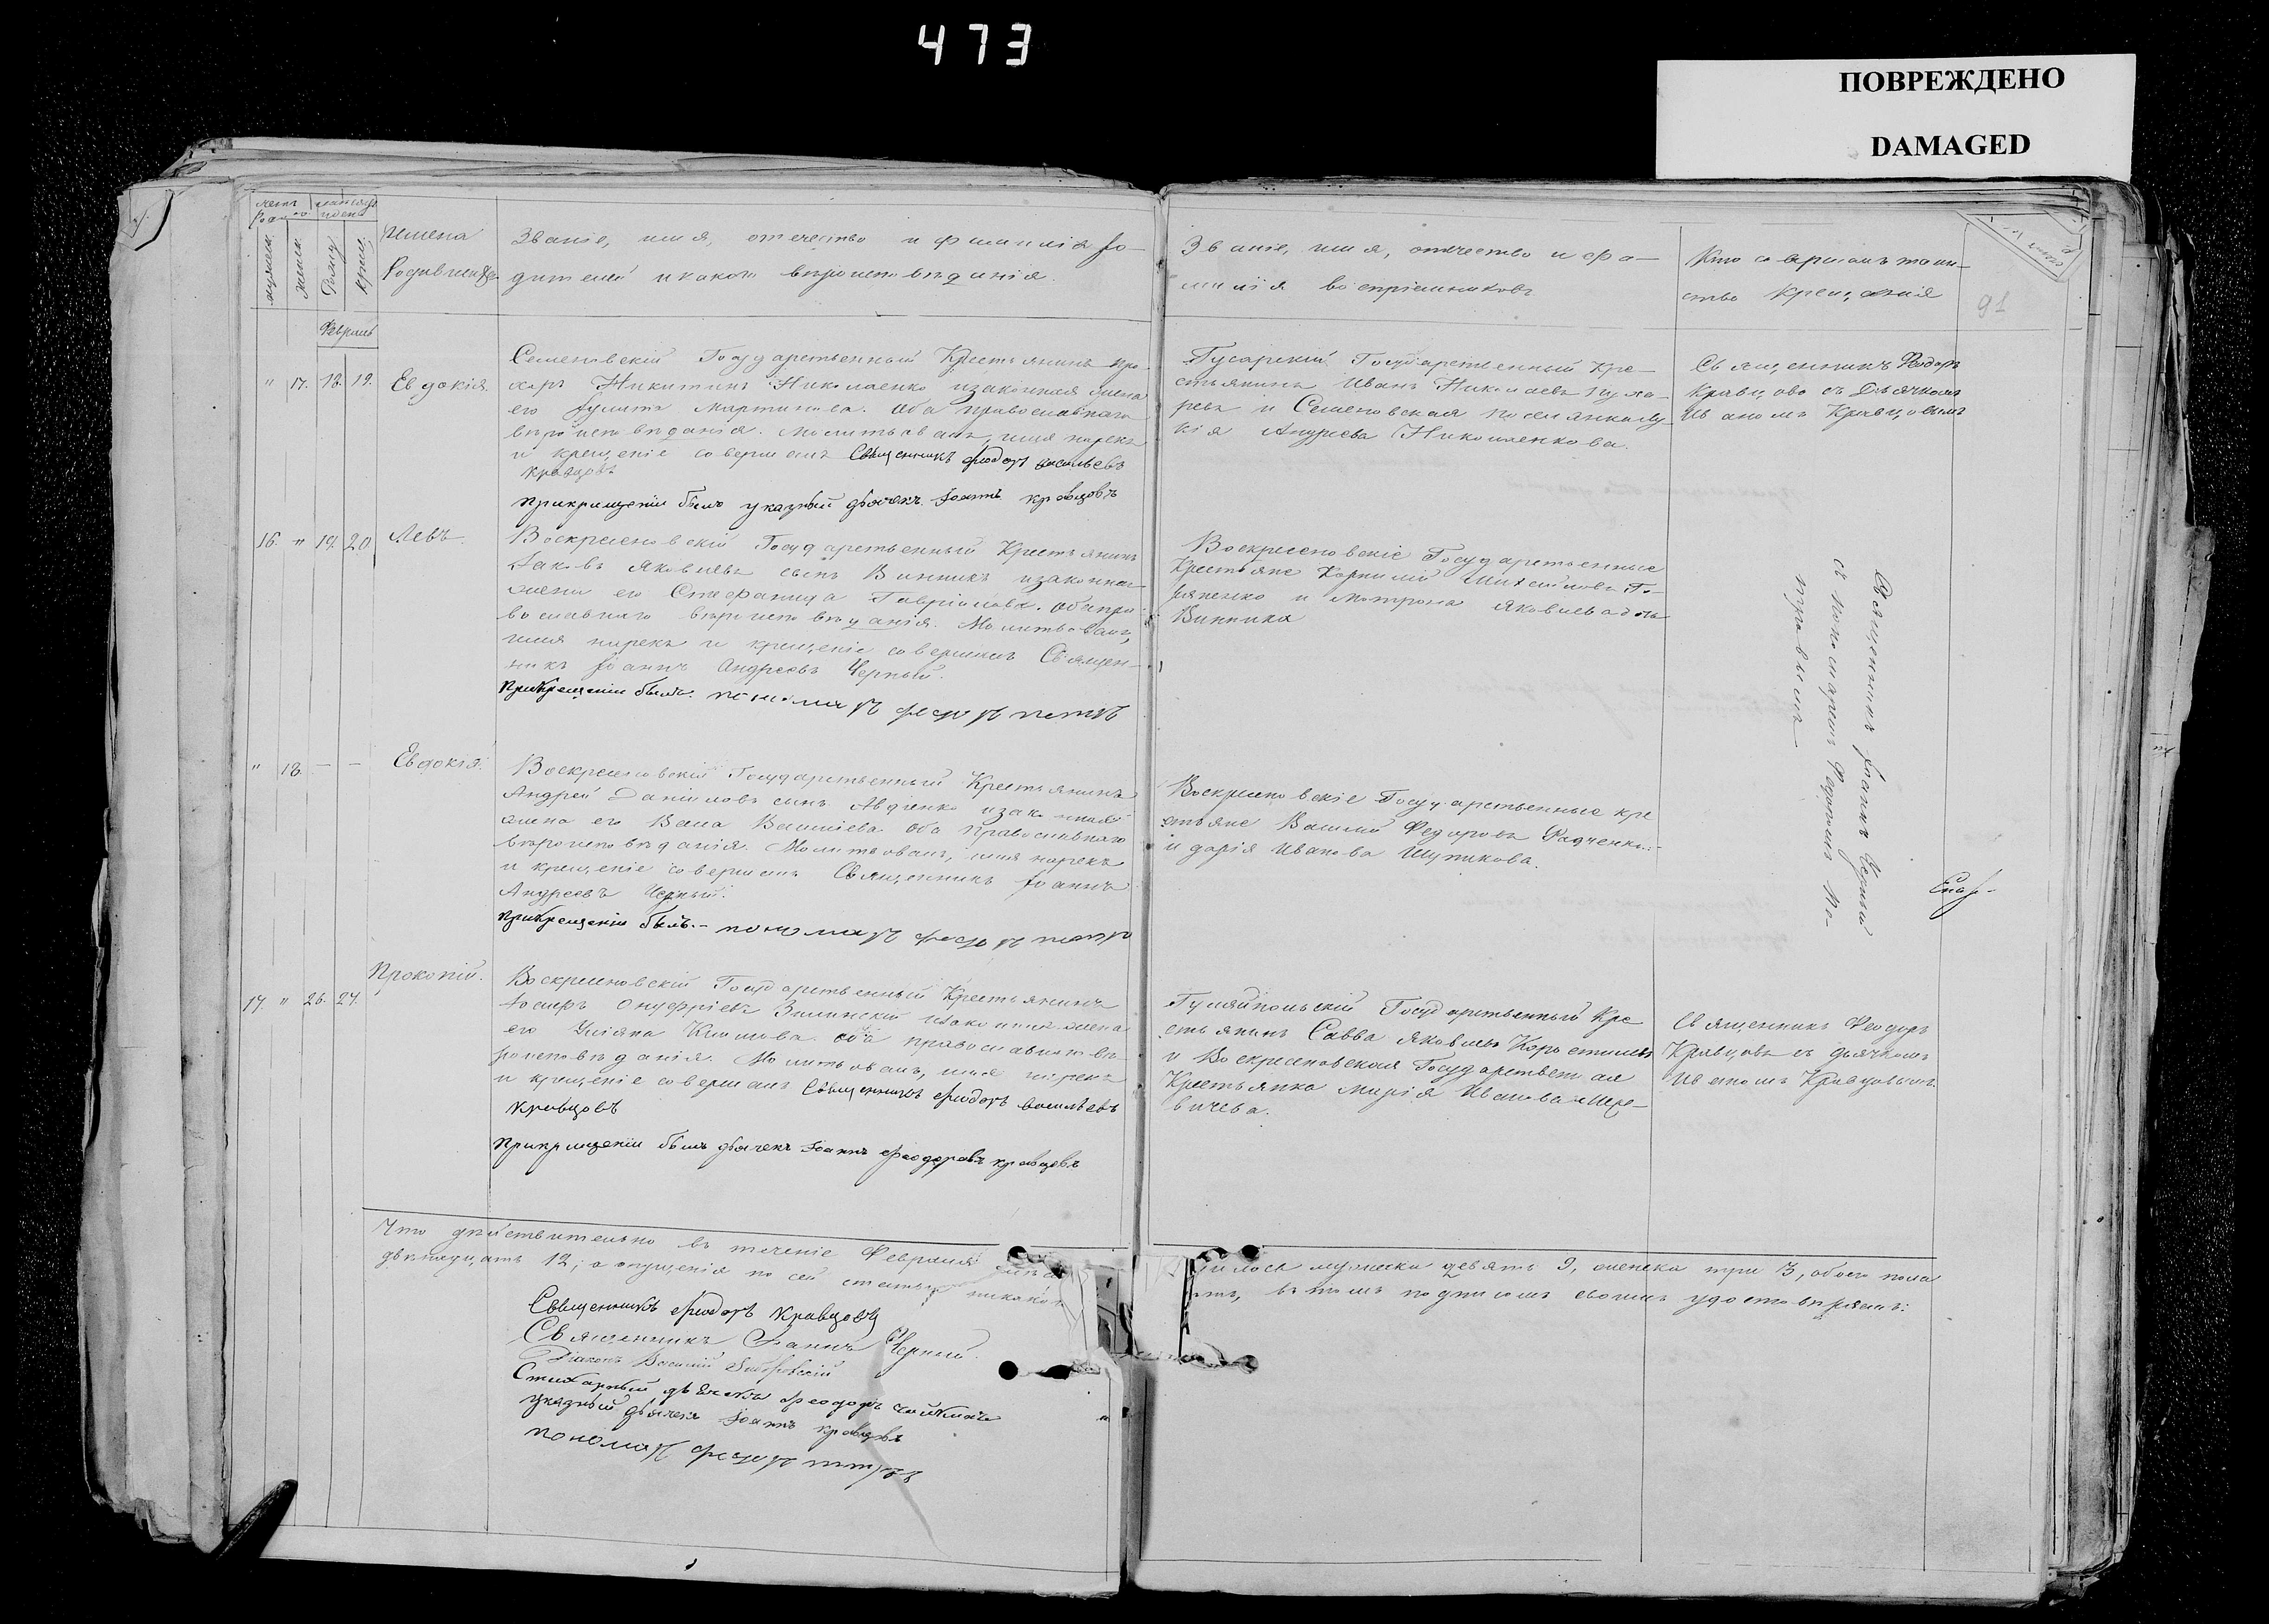 473
ПОВРЕЖДЕНО
DAMAGED
91
Имена
Родившихся
Званіе, имя, отечество и фамилія ро-
дителей и какого вѣроисповѣданія.
Званіе, имя, отечество и фа-
милія воспріемниковъ
Кто совершалъ таин-
ство крещенія
мужеск. женск. Рожд. Крещ.
Февраль
" 17. 18. 19. Евдокія.
Семеновскій Государственный Крестьянинъ Про-
хоръ Никитинъ Николаенко и законная жена
его Іулита Мартинова. Оба православнаго
вѣроисповѣданія. Молитвовалъ, имя нарекъ
и крещеніе совершалъ Священникъ Феодоръ Васильевъ
Кравцовъ
При крещеніи былъ указный дьячекъ Іоаннъ Кравцовъ
Гусарскій Государственный Кре-
стьянинъ Иванъ Николаевъ
и Семеновская поселянка
Андреева Николаенкова.
Священникъ Феодоръ
Кравцовъ съ Дьячкомъ
Иваномъ Кравцовымъ
16. " 19. 20. Левъ.
Воскресеновскій Государственный Крестьянинъ
Іаковъ Яковлевъ сынъ Винникъ и законная
жена его Стефанида Гавріилова. Оба пра-
вославнаго вѣроисповѣданія. Молитвовалъ,
имя нарекъ и крещеніе совершилъ Священ-
никъ Іоаннъ Андреевъ Черный.
При крещеніи былъ. пономаръ федоръ
Воскресеновскіе Государственные
Крестьяне Корнилій Михайловъ
и Мотрона Яковлева дочь
Винника
Священникъ Іоаннъ Черный
съ пономаремъ Федоромъ
" 18. — — Евдокія.
Воскресеновскій Государственный Крестьянинъ
Андрей Даніиловъ сынъ Авдіенко и законная
жена его Васса Василіева оба православнаго
вѣроисповѣданія. Молитвовалъ, имя нарекъ
и крещеніе совершилъ Священникъ Іоаннъ
Андреевъ Черный.
При крещеніи былъ.- пономаръ федоръ
Воскресеновскіе Государственные кре
стьяне Василій Федоровъ Радченко
и Дарія Иванова Шупикова.
17. " 26. 27. Прокопій.
Воскресеновскій Государственный Крестьянинъ
Іосифъ Онуфріевъ Зилинскій и законная жена
его Уліяна Климова. оба православнаго вѣ-
роисповѣданія. Молитвовалъ, имя нарекъ
и крещеніе совершалъ Священникъ Феодоръ Васильевъ
Кравцовъ
При крещеніи былъ дьячекъ Іоаннъ Феодоровъ Кравцовъ
Гуляйпольскій Государственный Кре
стьянинъ Савва Яковлевъ Коростилевъ
и Воскресеновская Государственная
Крестьянка Марія Иванова
Священникъ Феодоръ
Кравцовъ съ дьячкомъ
Иваномъ Кравцовымъ
Что дѣйствительно въ теченіе Февраля
мужеска девять 9, женска три 3, обоего пола
двѣнадцать 12; а опущенія по сей статьѣ
въ томъ подписомъ своимъ удостовѣряемъ:
Священникъ Феодоръ Кравцовъ
Священникъ Іоаннъ Черный.
Діаконъ Василій
Стихарный дьячекъ Феодоръ
указный дьячекъ Іоаннъ Кравцовъ
пономаръ федоръ